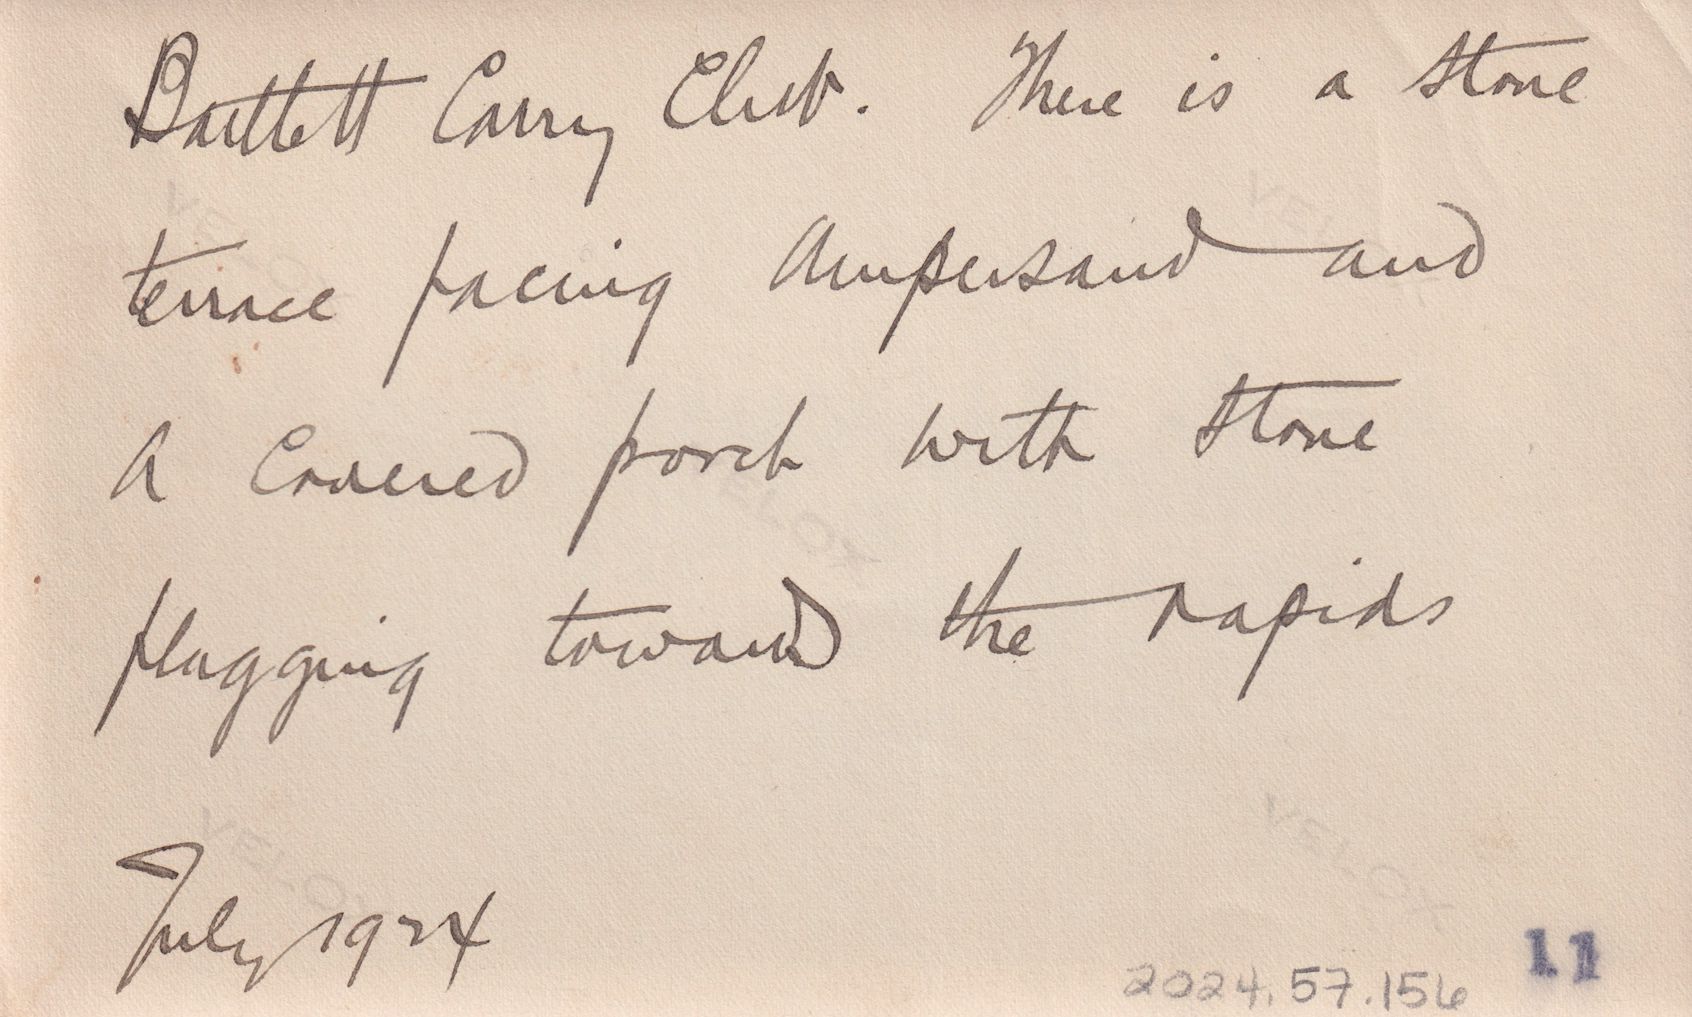 Bartlett Carry Club. There is a stone
terrace facing Ampersand and
a covered porch with stone
flagging toward the rapids
July 1924
2024.57.156
11
VELOX
VELOX
VELOX
VELOX
VELOX